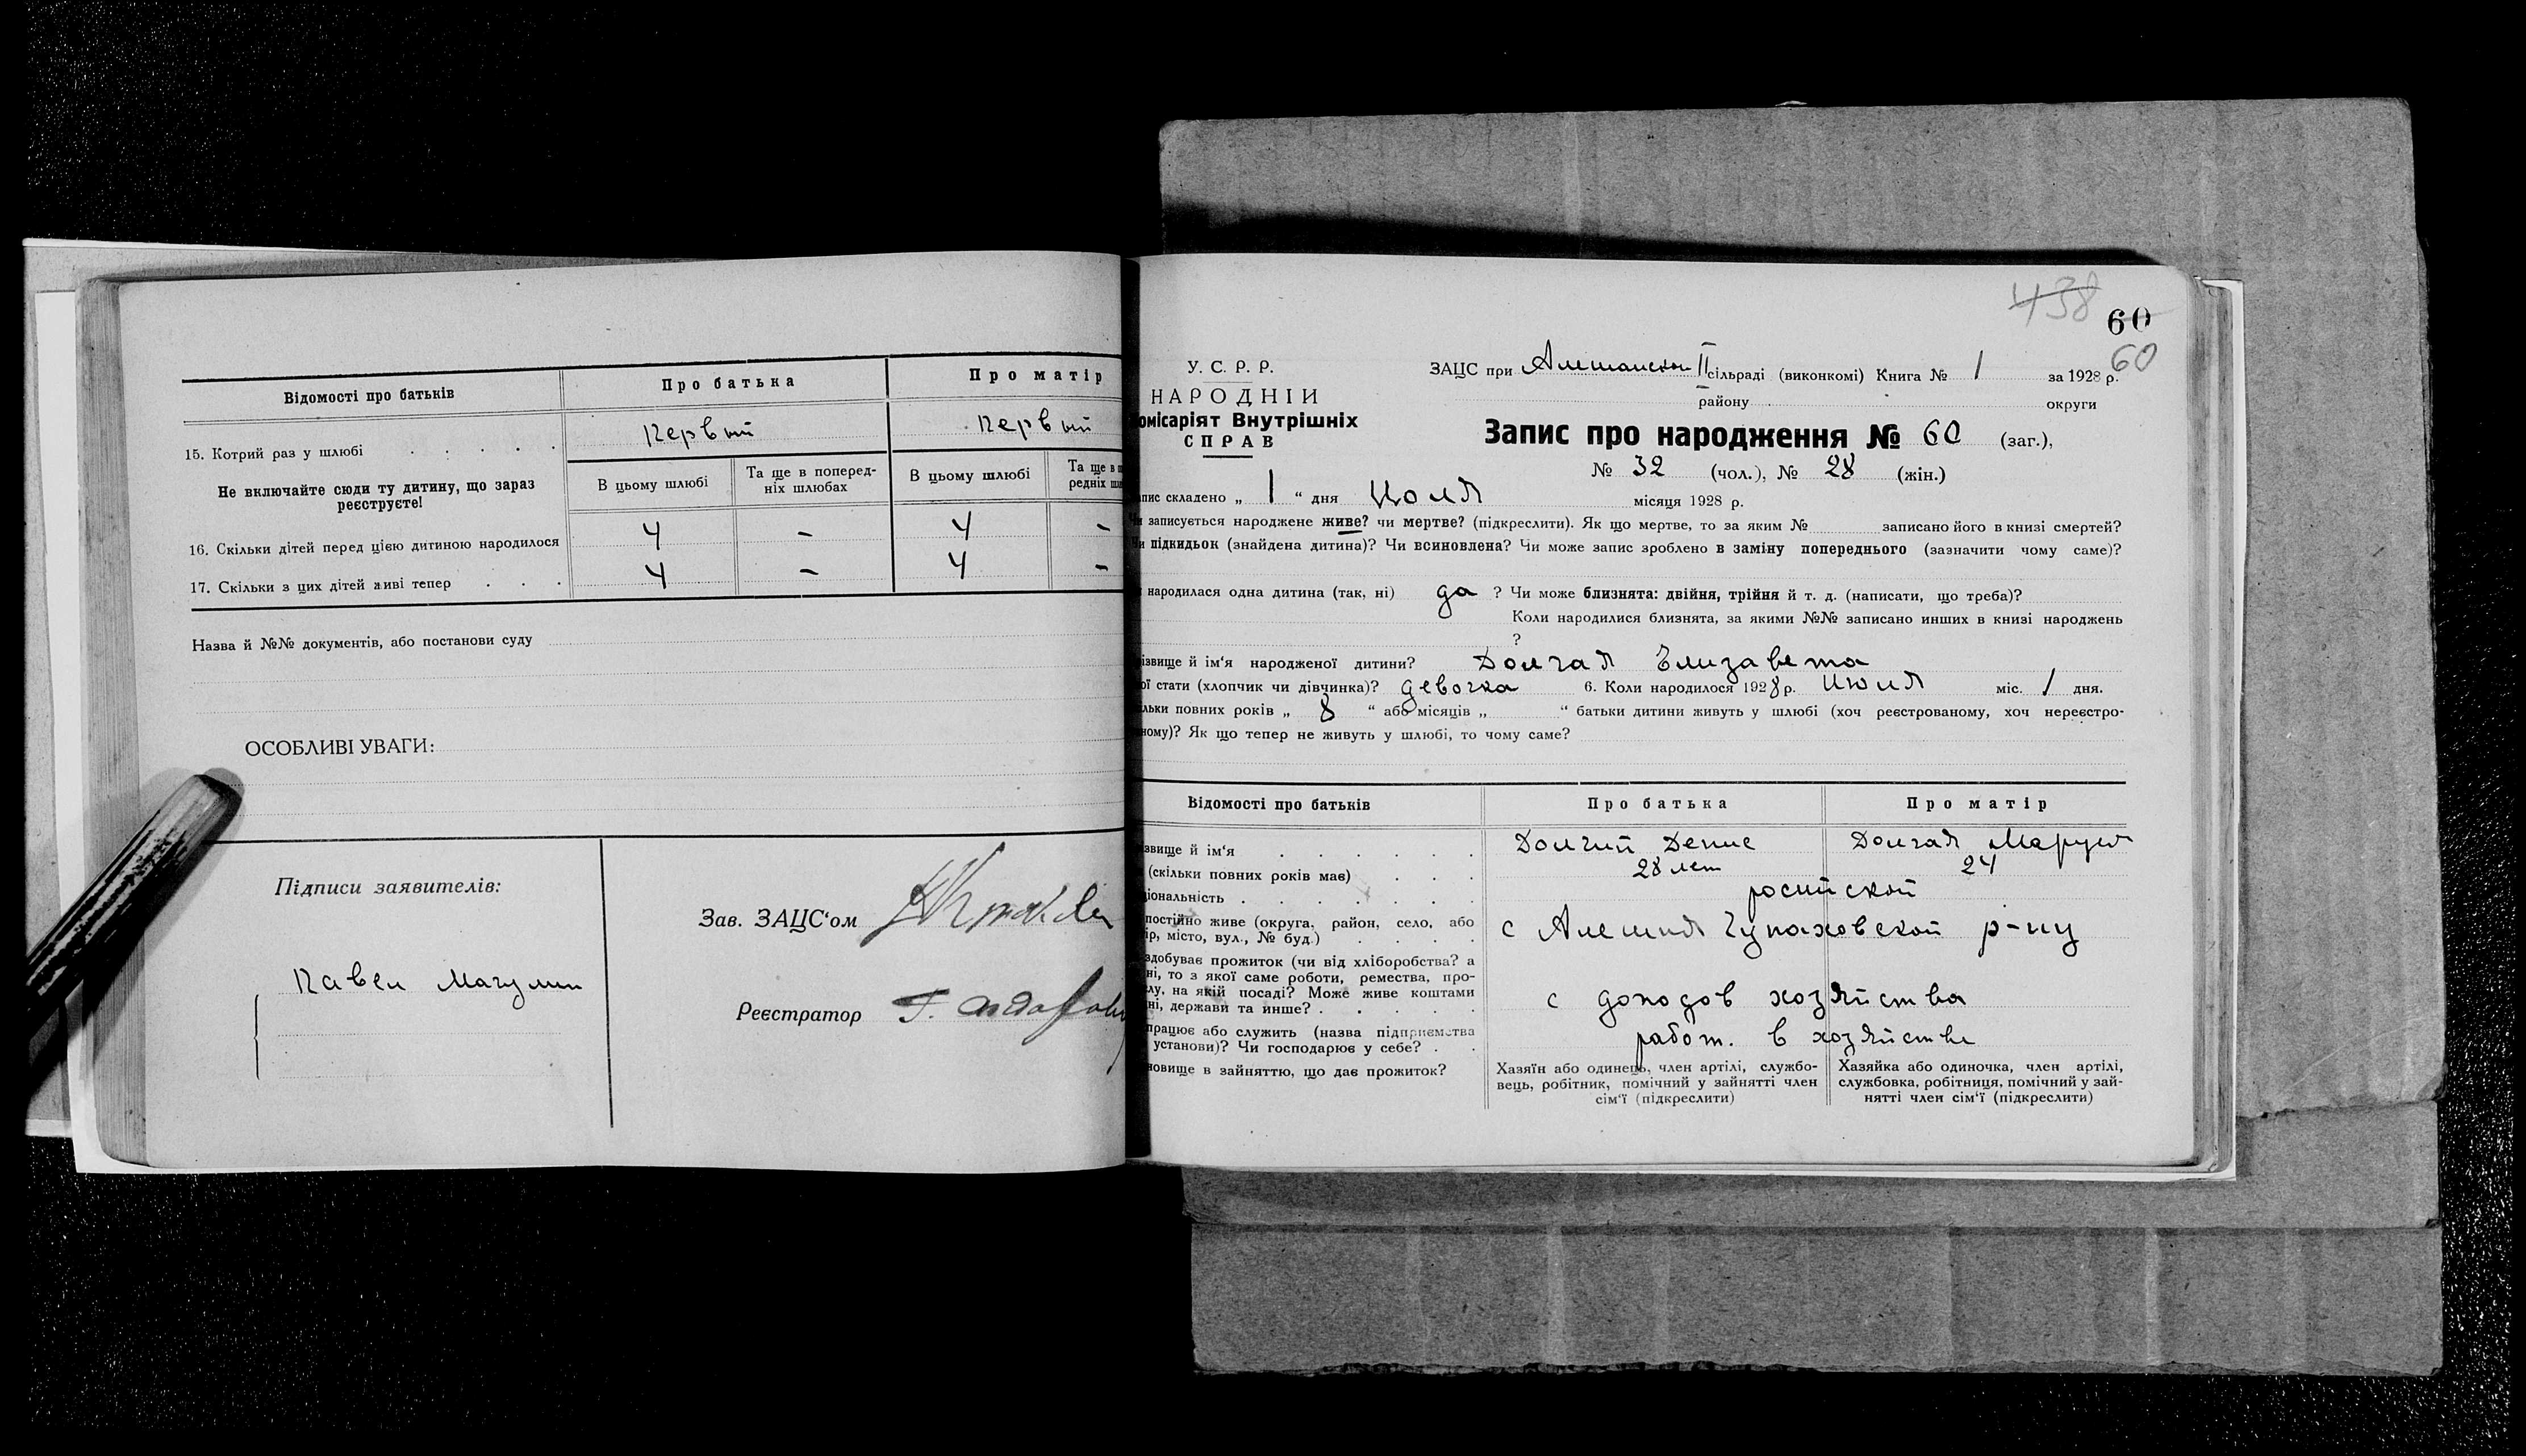 Відомості про батьків
Про батька
Про матір
15. Котрий раз у шлюбі
Первый
Первый
Не включайте сюди ту дитину, що зараз реєструєте!
В цьому шлюбі
Та ще в поперед-
ніх шлюбах
В цьому шлюбі
Та ще в п
редніх шл
16. Скільки дітей перед цією дитиною народилося
4 - 4 -
17. Скільки з цих дітей живі тепер
4 - 4 -
Назва й №№ документів, або постанови суду
ОСОБЛИВІ УВАГИ:
Підписи заявителів:
Зав. ЗАЦС'ом
Павел
Реєстратор
438
60
60
У. С. Р. Р.
НАРОДНІЙ
омісаріят Внутрішніх
СПРАВ
ЗАЦС при II сільраді (виконкомі) Книга № 1 за 1928 р.
району округи
Запис про народження № 60 (заг.),
№ 32 (чол.), № 28 (жін.)
пис складено „ 1 “ дня Июля місяця 1928 р.
и записується народжене живе? чи мертве? (підкреслити). Як що мертве, то за яким № записано його в книзі смертей?
и підкидьок (знайдена дитина)? Чи всиновлена? Чи може запис зроблено в заміну попереднього (зазначити чому саме)?
народилася одна дитина (так, ні) да ? Чи може близнята: двійня, трійня й т. д. (написати, що треба)?
Коли народилися близнята, за якими №№ записано инших в книзі народжень
?
ізвище й ім'я народженої дитини? Долгая Елизавета
ої стати (хлопчик чи дівчинка)? девочка 6. Коли народилося 1928 р. Июля міс. 1 дня.
льки повних років „ 8 “ або місяців „ “ батьки дитини живуть у шлюбі (хоч реєстрованому, хоч нереєстро-
ному)? Як що тепер не живуть у шлюбі, то чому саме?
Відомості про батьків
Про батька
Про матір
звище й ім'я
Долгий Денис
Долгая
(скільки повних років має)
28 лет
24
ціональність
росийской
постійно живе (округа, район, село, або
ір, місто, вул., № буд.)
с Алешня Чупаховской р-ну
здобуває прожиток (чи від хліборобства? а
ні, то з якої саме роботи, ремества, про-
лу, на якій посаді? Може живе коштами
ні, держави та инше?
с доходов хозяйства
працює або служить (назва підприємства
установи)? Чи господарює у себе?
работ. в хозяйстве
новище в зайняттю, що дає прожиток?
Хазяїн або одинець, член артілі, службо-
вець, робітник, помічний у зайнятті член
сім'ї (підкреслити)
Хазяйка або одиночка, член артілі,
службовка, робітниця, помічний у зай-
нятті член сім'ї (підкреслити)